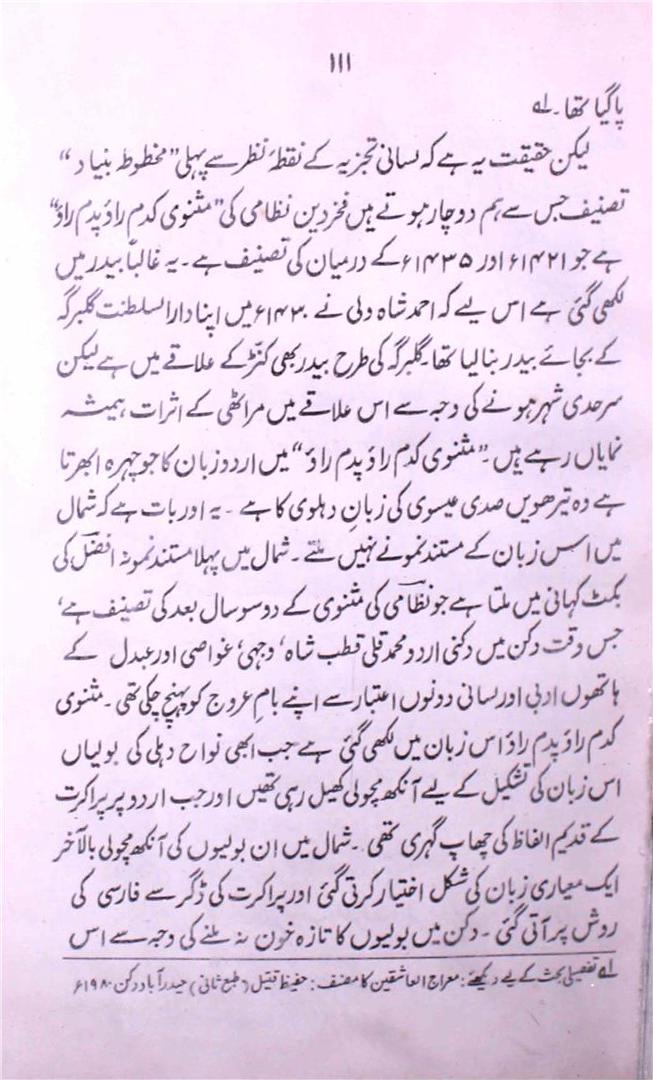 ۱۱۱
پا گیا تھا۔ ؎۱
لیکن حقیقت یہ ہے کہ لسانی تجزیہ کے نقطۂ نظر سے پہلی ”مخطوط بنیاد“
تصنیف جس سے ہم دوچار ہوتے ہیں فخر دین نظامی کی ”مثنوی کدم راؤ پدم راؤ“
ہے جو ۱۴۲۱ء اور ۱۴۳۵ء کے درمیان کی تصنیف ہے۔ یہ غالباً بیدر میں
لکھی گئی ہے اس لیے کہ احمد شاہ ولی نے ۱۴۳۰ء میں اپنا دارالسلطنت گلبرگہ
کے بجائے بیدر بنا لیا تھا۔ گلبرگہ کی طرح بیدر بھی کنڑ کے علاقے میں ہے لیکن
سرحدی شہر ہونے کی وجہ سے اس علاقے میں مراٹھی کے اثرات ہمیشہ
نمایاں رہے ہیں۔ ”مثنوی کدم راؤ پدم راؤ“ میں اردو زبان کا جو چہرہ ابھرتا
ہے وہ تیرھویں صدی عیسوی کی زبانِ دہلوی کا ہے۔ یہ اور بات ہے کہ شمال
میں اس زبان کے مستند نمونے نہیں ملتے۔ شمال میں پہلا مستند نمونہ افضل کی
بکٹ کہانی میں ملتا ہے جو نظامی کی مثنوی کے دو سو سال بعد کی تصنیف ہے،
جس وقت دکن میں دکنی اردو محمد قلی قطب شاہ، وجہی، غواصی اور عبدل کے
ہاتھوں ادبی اور لسانی دونوں اعتبار سے اپنے بامِ عروج کو پہنچ چکی تھی۔ مثنوی
کدم راؤ پدم راؤ اس زبان میں لکھی گئی ہے جب ابھی نواح دہلی کی بولیاں
اس زبان کی تشکیل کے لیے آنکھ مچولی کھیل رہی تھیں اور جب اردو پر پراکرت
کے قدیم الفاظ کی چھاپ گہری تھی۔ شمال میں ان بولیوں کی آنکھ مچولی بالآخر
ایک معیاری زبان کی شکل اختیار کرتی گئی اور پراکرت کی ڈگر سے فارسی کی
روش پر آتی گئی۔ دکن میں بولیوں کا تازہ خون نہ ملنے کی وجہ سے اس
؎۱ تفصیلی بحث کے لیے دیکھئے: معراج العاشقین کا مصنف: حفیظ قتیل (طبع ثانی) حیدرآباد دکن ۱۹۸۰ء